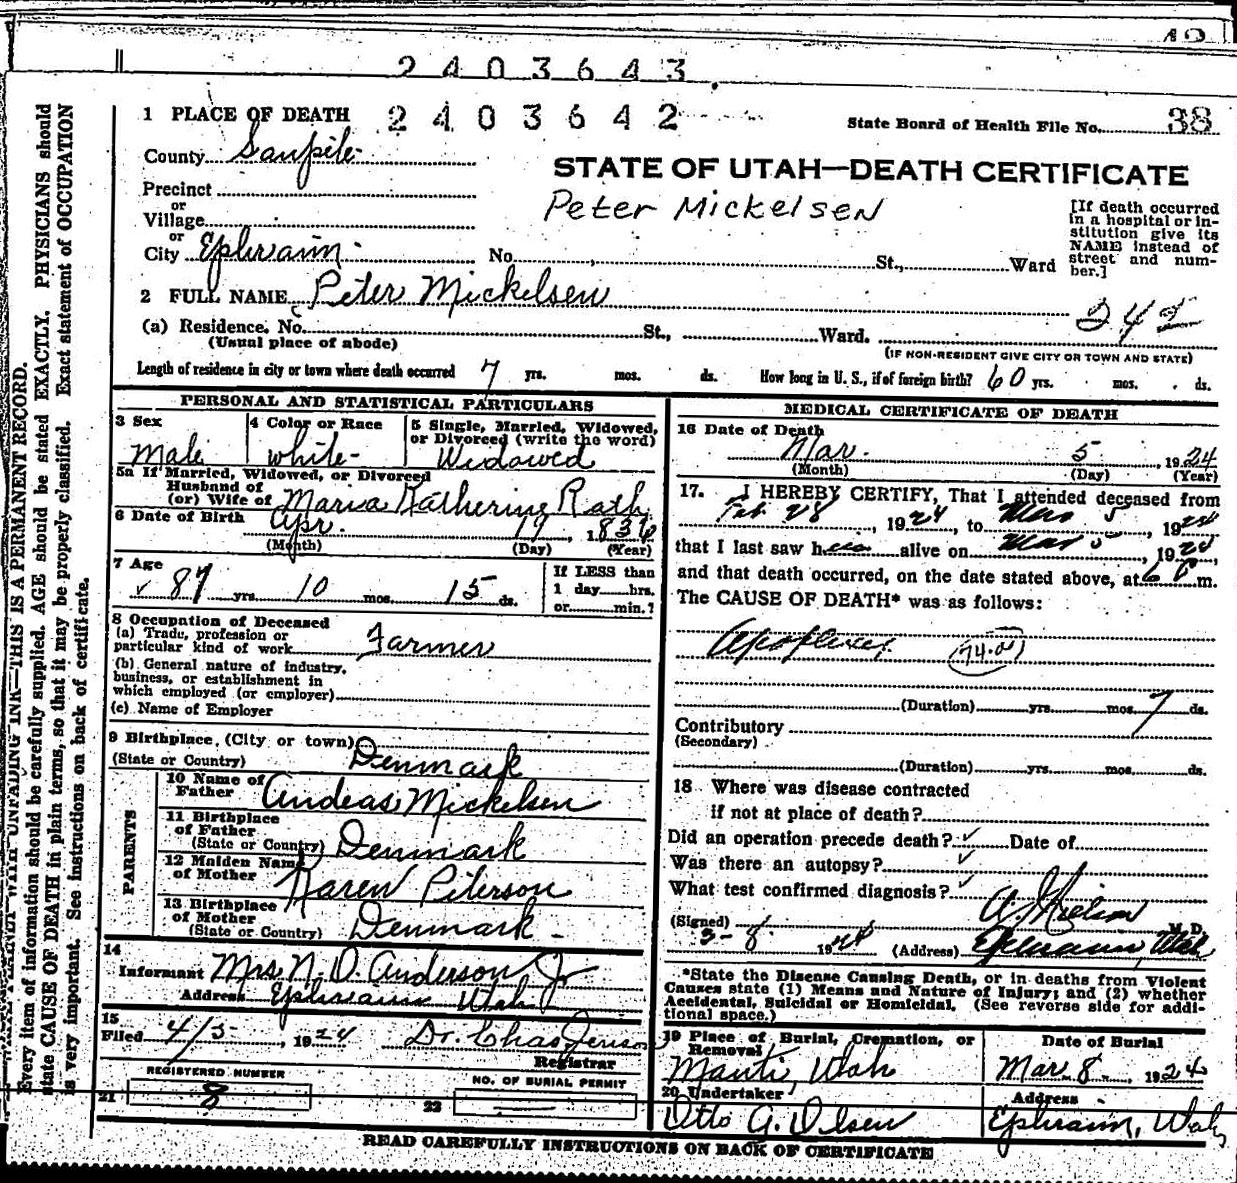 2403643
2403642
38
State Board of Health File No.
1 PLACE OF DEATH
County Sanpete
STATE OF UTAH—DEATH CERTIFICATE
Precinct
or
Village
Peter Mickelsen
[If death occurred in a hospital or institution give its NAME instead of street and number.]
or
City Ephraim No. St., Ward
2 FULL NAME Peter Mickelsen
242
(a) Residence. No. St., Ward.
(Usual place of abode)
(IF NON-RESIDENT GIVE CITY OR TOWN AND STATE)
Length of residence in city or town where death occurred 7 yrs. mos. ds. How long in U. S., if of foreign birth? 60 yrs. mos. ds.
PERSONAL AND STATISTICAL PARTICULARS
3 Sex
Male
4 Color or Race
white
5 Single, Married, Widowed, or Divorced (write the word)
Widowed
5a If Married, Widowed, or Divorced
Husband of
(or) Wife of Maria Katherine Rath
6 Date of Birth Apr. 19, 1836
(Month) (Day) (Year)
7 Age
87 yrs. 10 mos. 15 ds.
If LESS than
1 day hrs.
or min.?
8 Occupation of Deceased
(a) Trade, profession or
particular kind of work Farmer
(b) General nature of industry,
business, or establishment in
which employed (or employer)
(c) Name of Employer
9 Birthplace, (City or town)
(State or Country) Denmark
PARENTS
10 Name of
Father Andeas Mickelsen
11 Birthplace
of Father
(State or Country) Denmark
12 Maiden Name
of Mother Karen Peterson
13 Birthplace
of Mother
(State or Country) Denmark
14
Informant Mrs. N. O. Anderson Jr
Address Ephraim Utah
15
Filed 4/5, 1924 Dr. Chas Jenson
Registrar
REGISTERED NUMBER
21 8
NO. OF BURIAL PERMIT
22
MEDICAL CERTIFICATE OF DEATH
16 Date of Death
Mar. 5, 1924
(Month) (Day) (Year)
17. I HEREBY CERTIFY, That I attended deceased from
Feb 28, 1924, to Mar 5 1924
that I last saw him alive on Mar 5, 1924,
and that death occurred, on the date stated above, at 6 P m.
The CAUSE OF DEATH* was as follows:
Apoplexy
(Duration) yrs. mos. 7 ds.
Contributory
(Secondary)
(Duration) yrs. mos. ds.
18 Where was disease contracted
if not at place of death?
Did an operation precede death? Date of
Was there an autopsy?
What test confirmed diagnosis?
(Signed) A. Nielson M.D.
3-8 1924 (Address) Ephraim, Utah
*State the Disease Causing Death, or in deaths from Violent
Causes state (1) Means and Nature of Injury; and (2) whether
Accidental, Suicidal or Homicidal. (See reverse side for addi-
tional space.)
19 Place of Burial, Cremation, or
Removal
Manti, Utah
Date of Burial
Mar 8, 1924
20 Undertaker
Otto A. Olsen
Address
Ephraim, Utah
READ CAREFULLY INSTRUCTIONS ON BACK OF CERTIFICATE
UNFADING INK—THIS IS A PERMANENT RECORD.
Every item of information should be carefully supplied. AGE should be stated EXACTLY. PHYSICIANS should
state CAUSE OF DEATH in plain terms, so that it may be properly classified. Exact statement of OCCUPATION
is very important. See instructions on back of certificate.